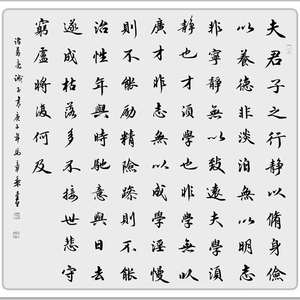 夫君子之行靜以脩身儉
以養德非淡泊無以明志
非寧靜無以致遠夫學須
靜也才須學也非學無以
廣才非志無以成學淫慢
則不能勵精險躁則不能
治性年與時馳意與日去
遂成枯落多不接世悲守
窮廬將復何及
諸葛亮誡子書庚子年